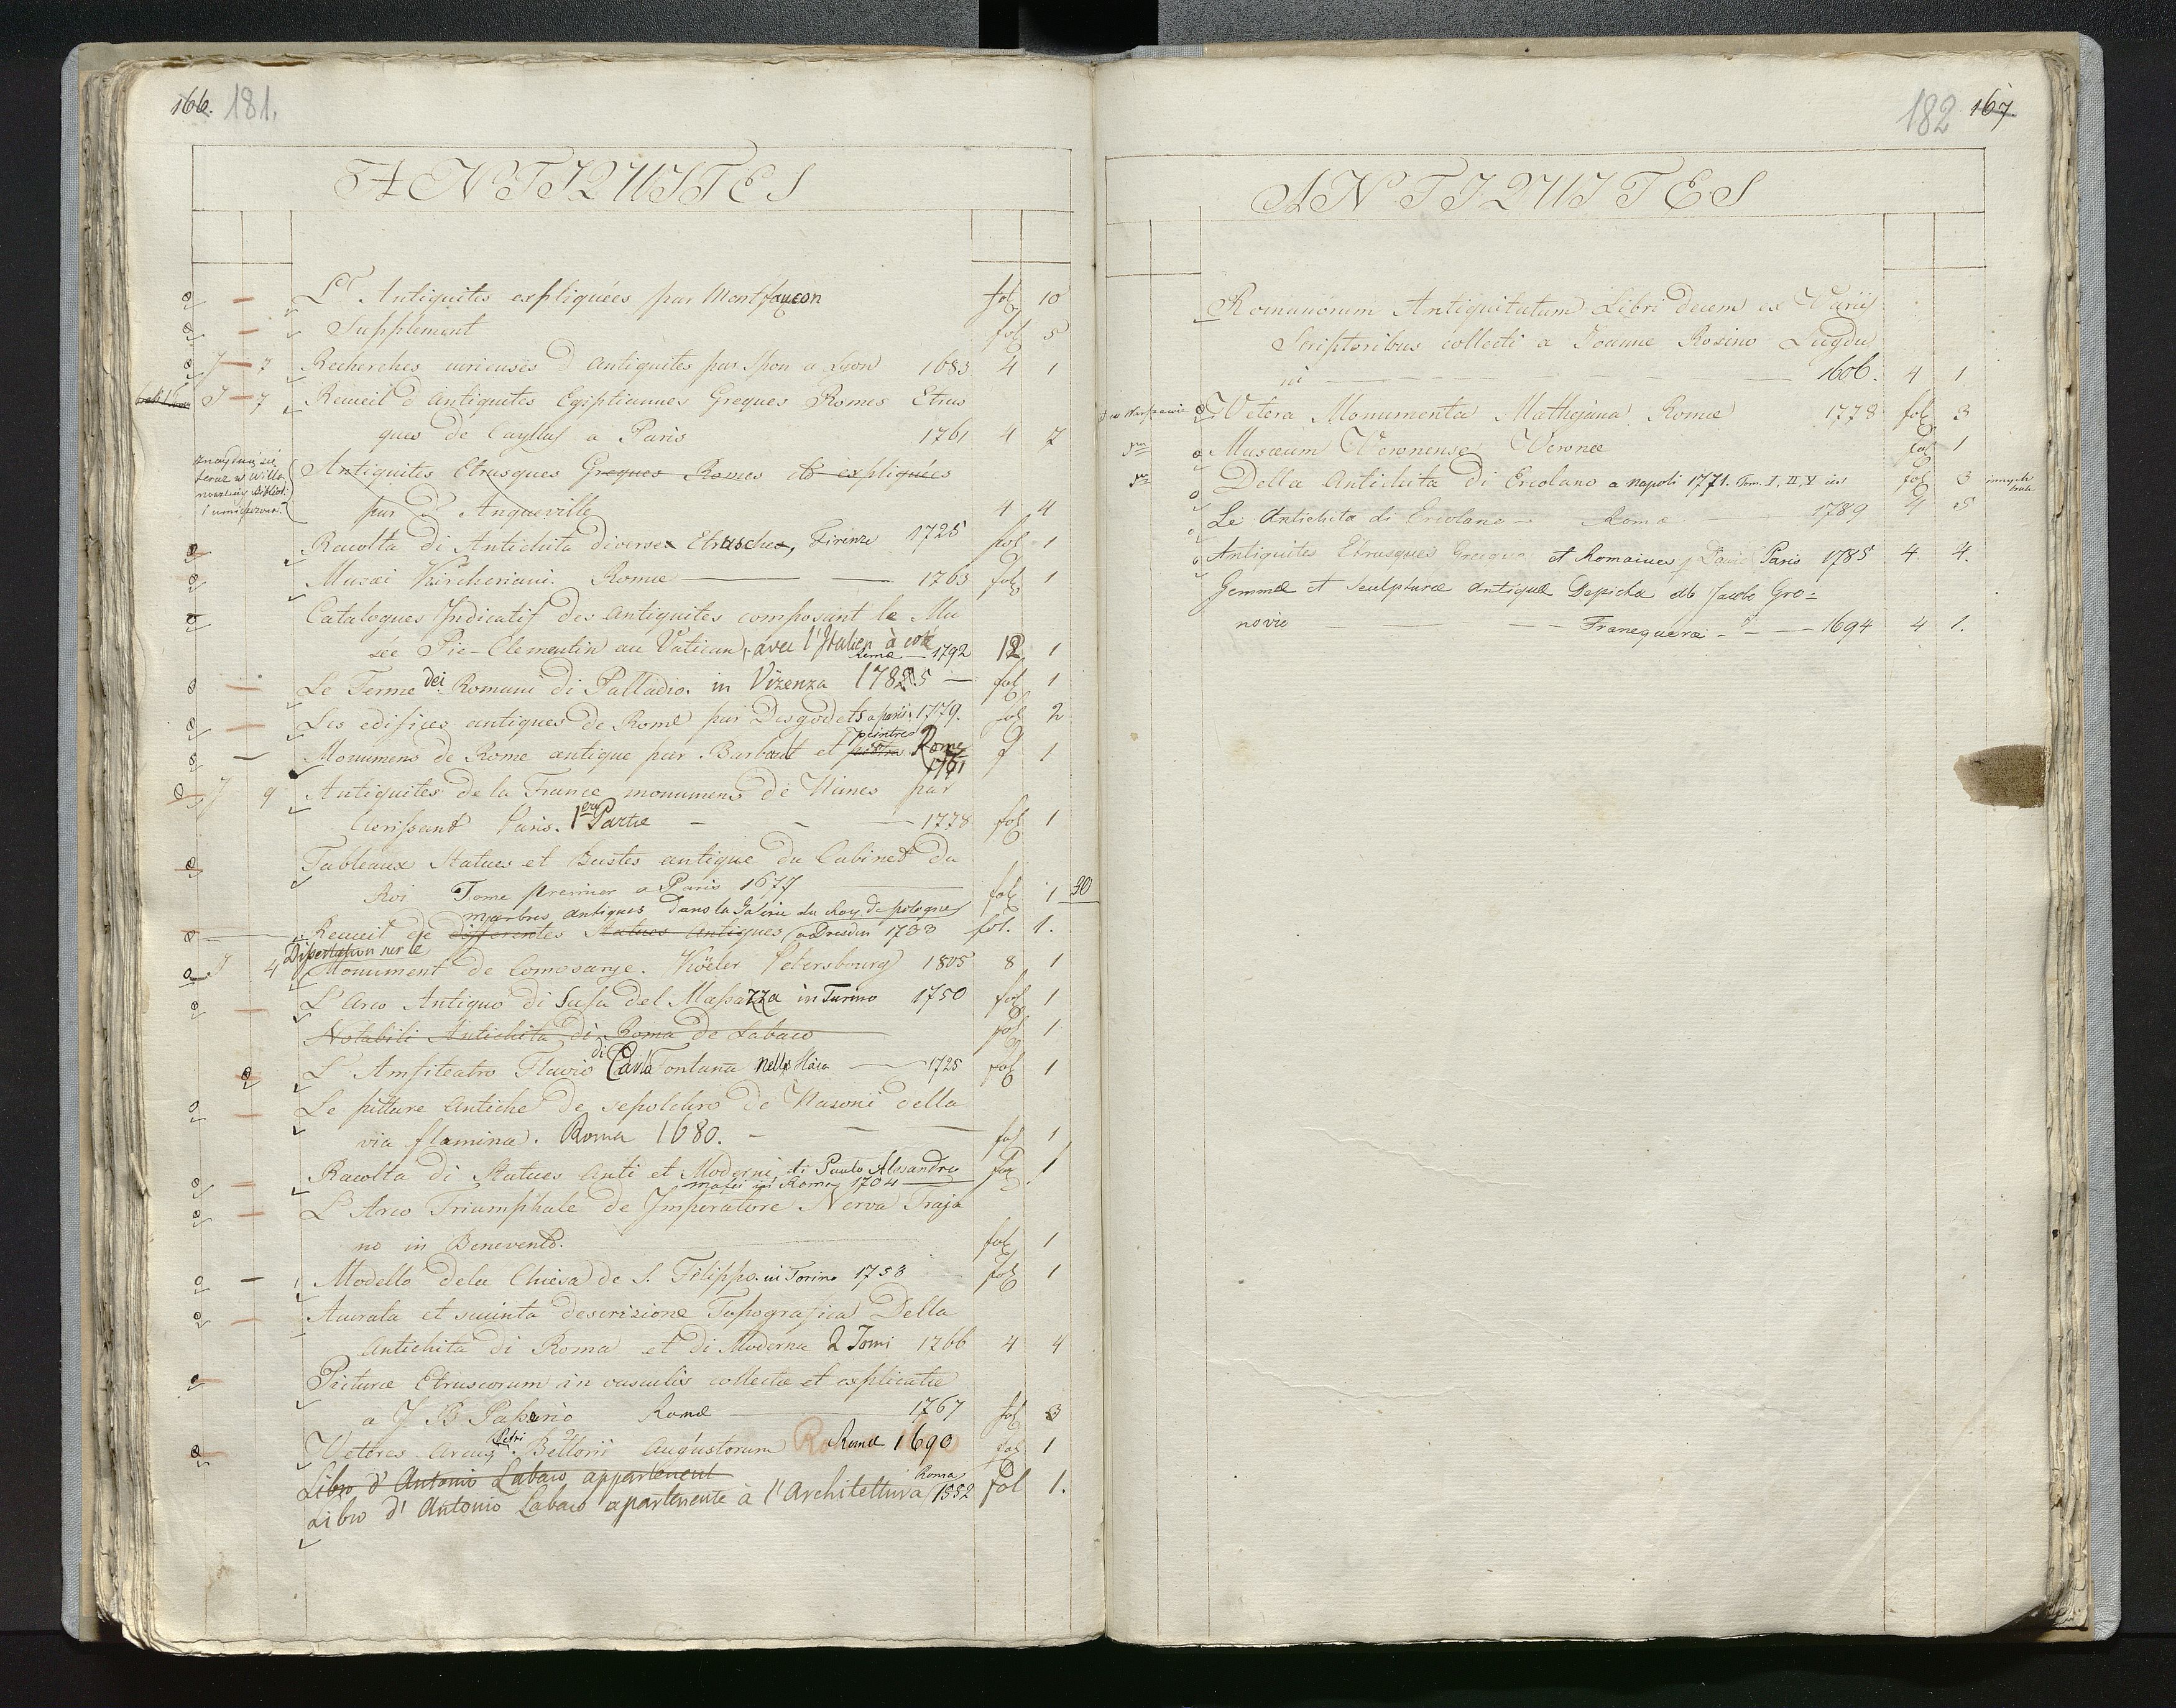 166. 181.
ANTIQUITES
Les Antiquites expliquées par Montfaucon fol 10
Supplement fol 5
J 7 Recherches curieuses d'antiquites par Spon a Lyon 1683 4 1
J 7 Recueil d'antiquites Egiptiannes Greques Romes Etrus
ques de Cayllus a Paris 1761 4 7
Antiquites Etrusques Greques Romes et expliquées
par d'Anqueville 4 4
Racolta di Antichita diverse Etrusche, Firenze 1725 fol 1
Musei Kircheriani. Romæ 1763 fol 1
Catalogues Indicatif des antiquites composant le Mu
sée Pie-Clementin au Vatican, avec l'Italien à coté
Rome 1792 12 1
Le Terme dei Romani di Palladio. in Vizenza 1785 fol 1
Les edifices antiques de Rome par Desgodets a paris 1779. fol 2
Monumens de Rome antique par Barbault et peintres Rome f 1
1761
J 9 Antiquites de la France monumens de Nimes par
Clerissant Paris. 1ere Partie 1778 fol 1
Tableaux Statues et Bustes antique du Cabinet du
Roi Tome premier a Paris 1677 fol 1 30
marbres antiques dans la Galerie du Roy de pologne
Recueil de differentes Statues antiques a Dresden 1733 fol. 1.
Dissertation sur le
J 4 Monument de Comosarye. Köeler Petersbourg 1805 8 1
L'Arco Antiquo di Susa del Massazza in Turino 1750 fol 1
Notabili Antichita di Roma de Labaco fol 1
L'Amfiteatro Flavio di Carlo Fontana nell Haia 1725 fol 1
Le pitture antiche de sepolchro de Nasoni della
via flamina. Roma 1680. fol 1
Racolta di Statues Anti et Moderni di Paulo Alesandro fol 1
mafei in Roma 1704
L'Arco Triumphale de Imperatore Nerva Traja
no in Benevento. fol 1
Modello dela Chiesa de S. Filippo in Torino 1758 fol 1
Acurata et succinta descrizione Topografica Della
Antichita di Roma et di Moderna 2 Tomi 1766 4 4
Picturæ Etruscorum in vasculis collectæ et explicatæ
a J B Passerio Romæ 1767 fol 3
Veteres Arcus Petri Bellorii Augustorum Romæ 1690 fol 1
Libro d'Antonio Labaco appartenent
Libro d'Antonio Labaco apartenente à l'Architettura Roma 1552 fol 1.
182 167
ANTIQUITES
Romanorum Antiquitatum Libri decem ex Variis
Scriptoribus collecti a Joanne Rosino Lugdu
ni 1606. 4 1
Vetera Monumenta Mathejana Romæ 1778 fol 3
Musæum Veronense Veronæ fol 1
Della Antichita di Ercolano a napoli 1771. Tom. I, II, V fol 3
Le Antichita di Ercolano Roma 1789 4 5
Antiquites Etrusques Greques et Romaines p. David Paris 1785 4 4.
Gemmæ et Sculpturæ antiquæ Depictæ ab Jacobo Gro=
novio Franequeræ 1694 4 1.